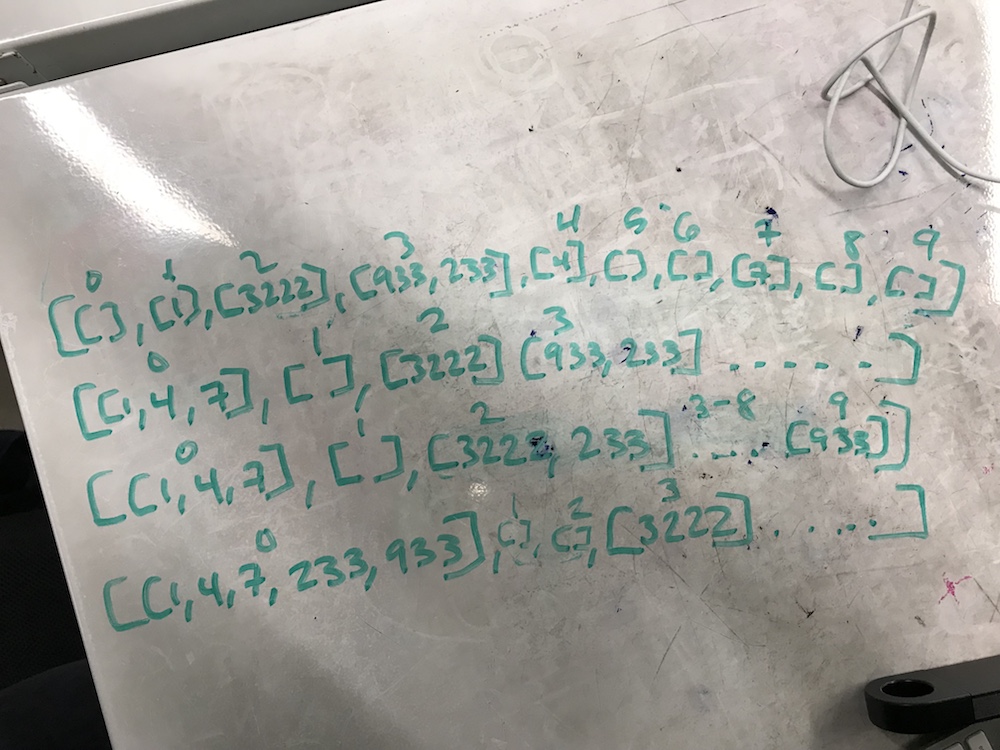 0 1 2 3 4 5 6 7 8 9
[[], [1], [3222], [933, 233], [4], [], [], [7], [], []]
0 1 2 3
[[1, 4, 7], [ ], [3222] [933, 233] ......]
0 1 2 3-8 9
[[1, 4, 7], [ ], [3222, 233] .... [933]]
0 1 2 3
[[1, 4, 7, 233, 933], [], [], [3222] .....]